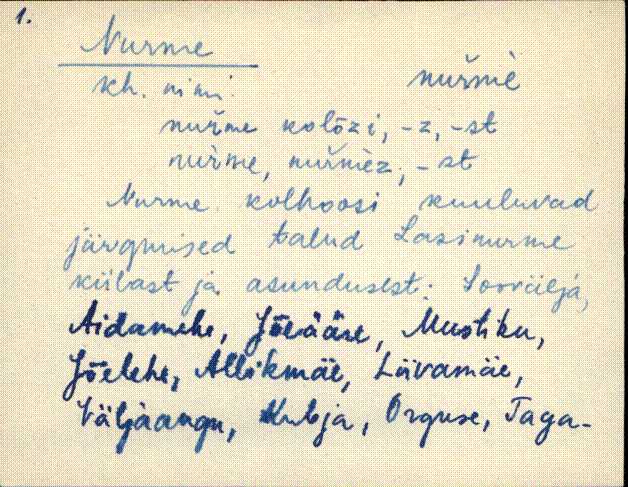 1.
Nurme
kh. nimi. nuřmè
nuřme kolōzi, -z, -st
nuřme, nuřmèz, -st
Nurme kolhoosi kuuluvad
järgmised talud Lasinurme
külast ja asundusest: Sooväljä,
Aidamehe, Jõeääre, Mustiku,
Jõelehe, Allikmäe, Liivamäe,
Väljaangu, Kubja, Orguse, Taga-